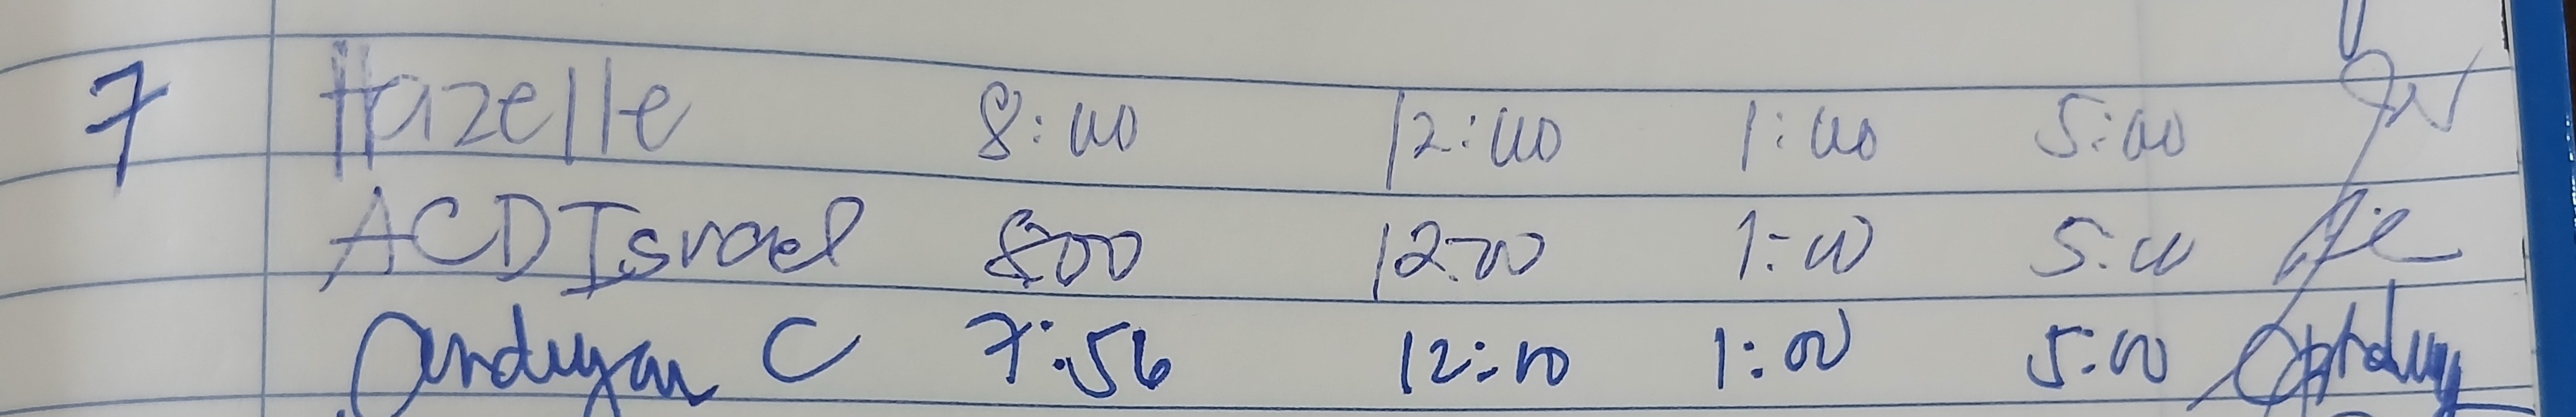 7 Hazelle 8:00 12:00 1:00 5:00
ACD Israel 8:00 12:00 1:00 5:00
C 7:56 12:00 1:00 5:00